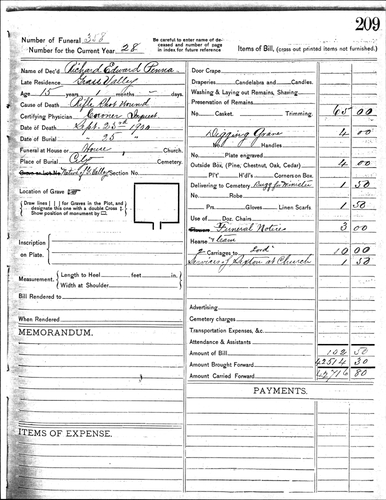 209
Number of Funeral 258
Number for the Current Year 28
Be carefull to enter name of deceased and number of cage in index for future reference
Items of Bill, (cross out printed items not furnished.)
Name of Dec'd Richard Edward Penna
Late Residence Grass Valley
Age 15 years months days
Cause of Death Rifle Shot Wound
Certifying Physician Coroner Inquest
Date of Death Sept. 25th 1900
Date of Burial " 25 "
Funeral at House or House, Church
Place of Burial City Cemetery.
Grave or Lot No. Native of G. Valley Section No.
Location of Grave
Draw lines for Graves in the Plot, and designate this one with a double Cross
Show position of monument by
Inscription on Plate.
Measurement. Length to Heel feet in.
Width at Shoulder
Bill Rendered to
When Rendered
MEMORANDUM.
ITEMS OF EXPENSE.
Door Crape
Draperies Candelabra and Candles.
Washing & Laying out Remains, Shaving
Preservation of Remains
No. Casket. Trimming. 65 00
Digging Grave 4 00
No. Handles
Plate engraved
Outside Box, (Pine, Chestnut, Oak, Cedar) 4 00
P'IY H'dl's Corners on Box
Delivering to Cemetery Buggy for Minister 1 50
No. Robe
Prs. Gloves Linen Scarfs 1 50
Use of Doz. Chairs
Funeral Notices 3 00
Hearse & Team
2 Carriages to Cord 10 00
Services of Sexton at Church 1 50
Advertising
Cemetery charges
Transportation Expenses, &c
Attendance & Assistants
Amount of Bill 102 50
Amount Brought Forward 42514 30
Amount Carried Forward 42716 80
PAYMENTS.